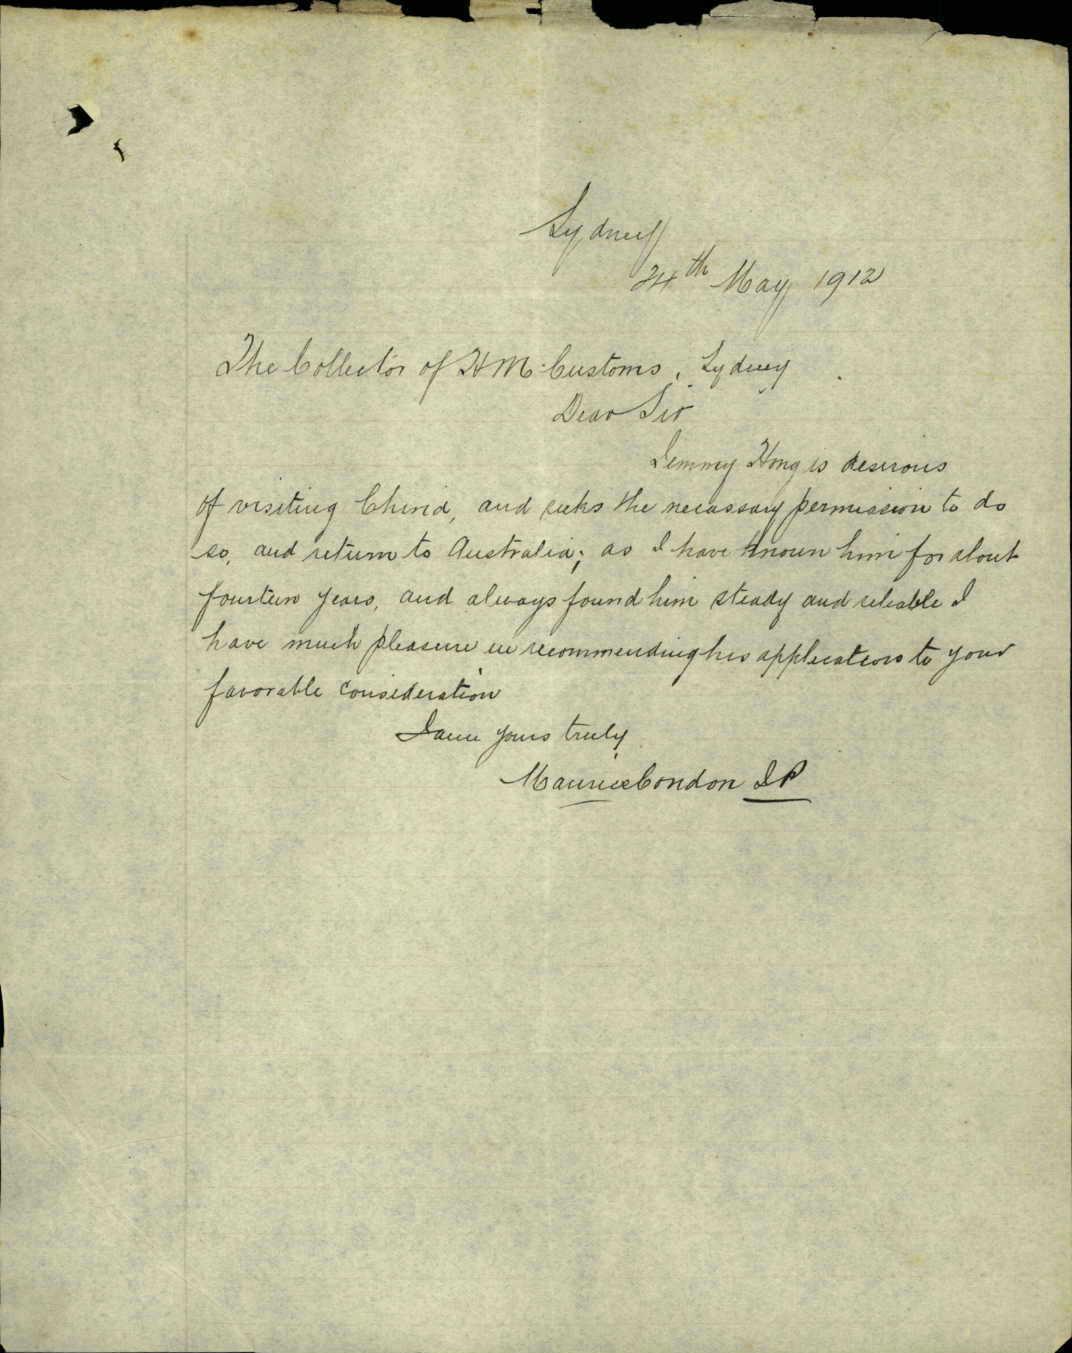 Sydney
24th May 1912
The Collector of H M Customs, Sydney
Dear Sir
Jemmy Hong is desirous
of visiting China, and seeks the necassary permission to do
so, and return to Australia; as I have known him for about
fourteen years, and always found him steady and reliable I
have much pleasure in recommending his application to your
favorable consideration
I am yours truly
Maurice Condon JP